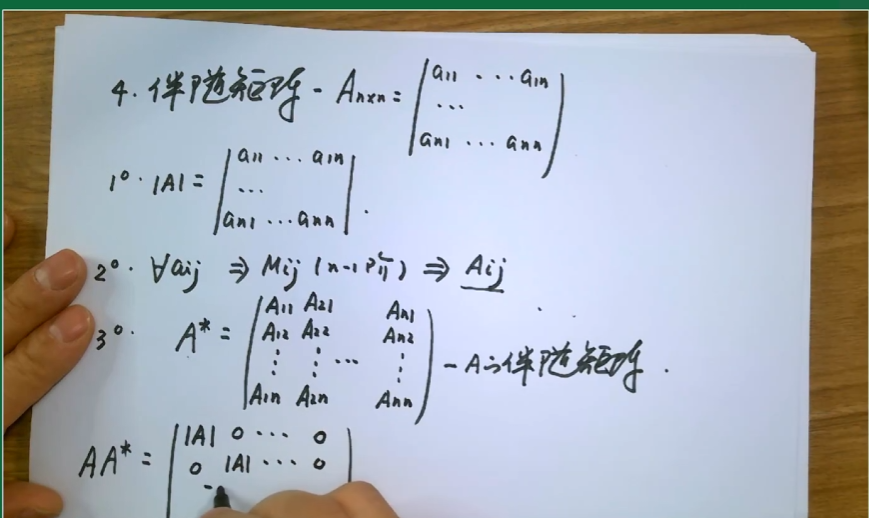 4. 伴随矩阵 - Anxn = (a11 ··· a1n
···
an1 ··· ann)
1°. |A| = |a11 ··· a1n
···
an1 ··· ann|.
2°. ∀aij ⇒ Mij (n-1阶) ⇒ Aij
3°. A* = (A11 A21 An1
A12 A22 An2
⋮ ⋮ ··· ⋮
A1n A2n Ann) - A的伴随矩阵.
AA* = (|A| 0 ··· 0
0 |A| ··· 0